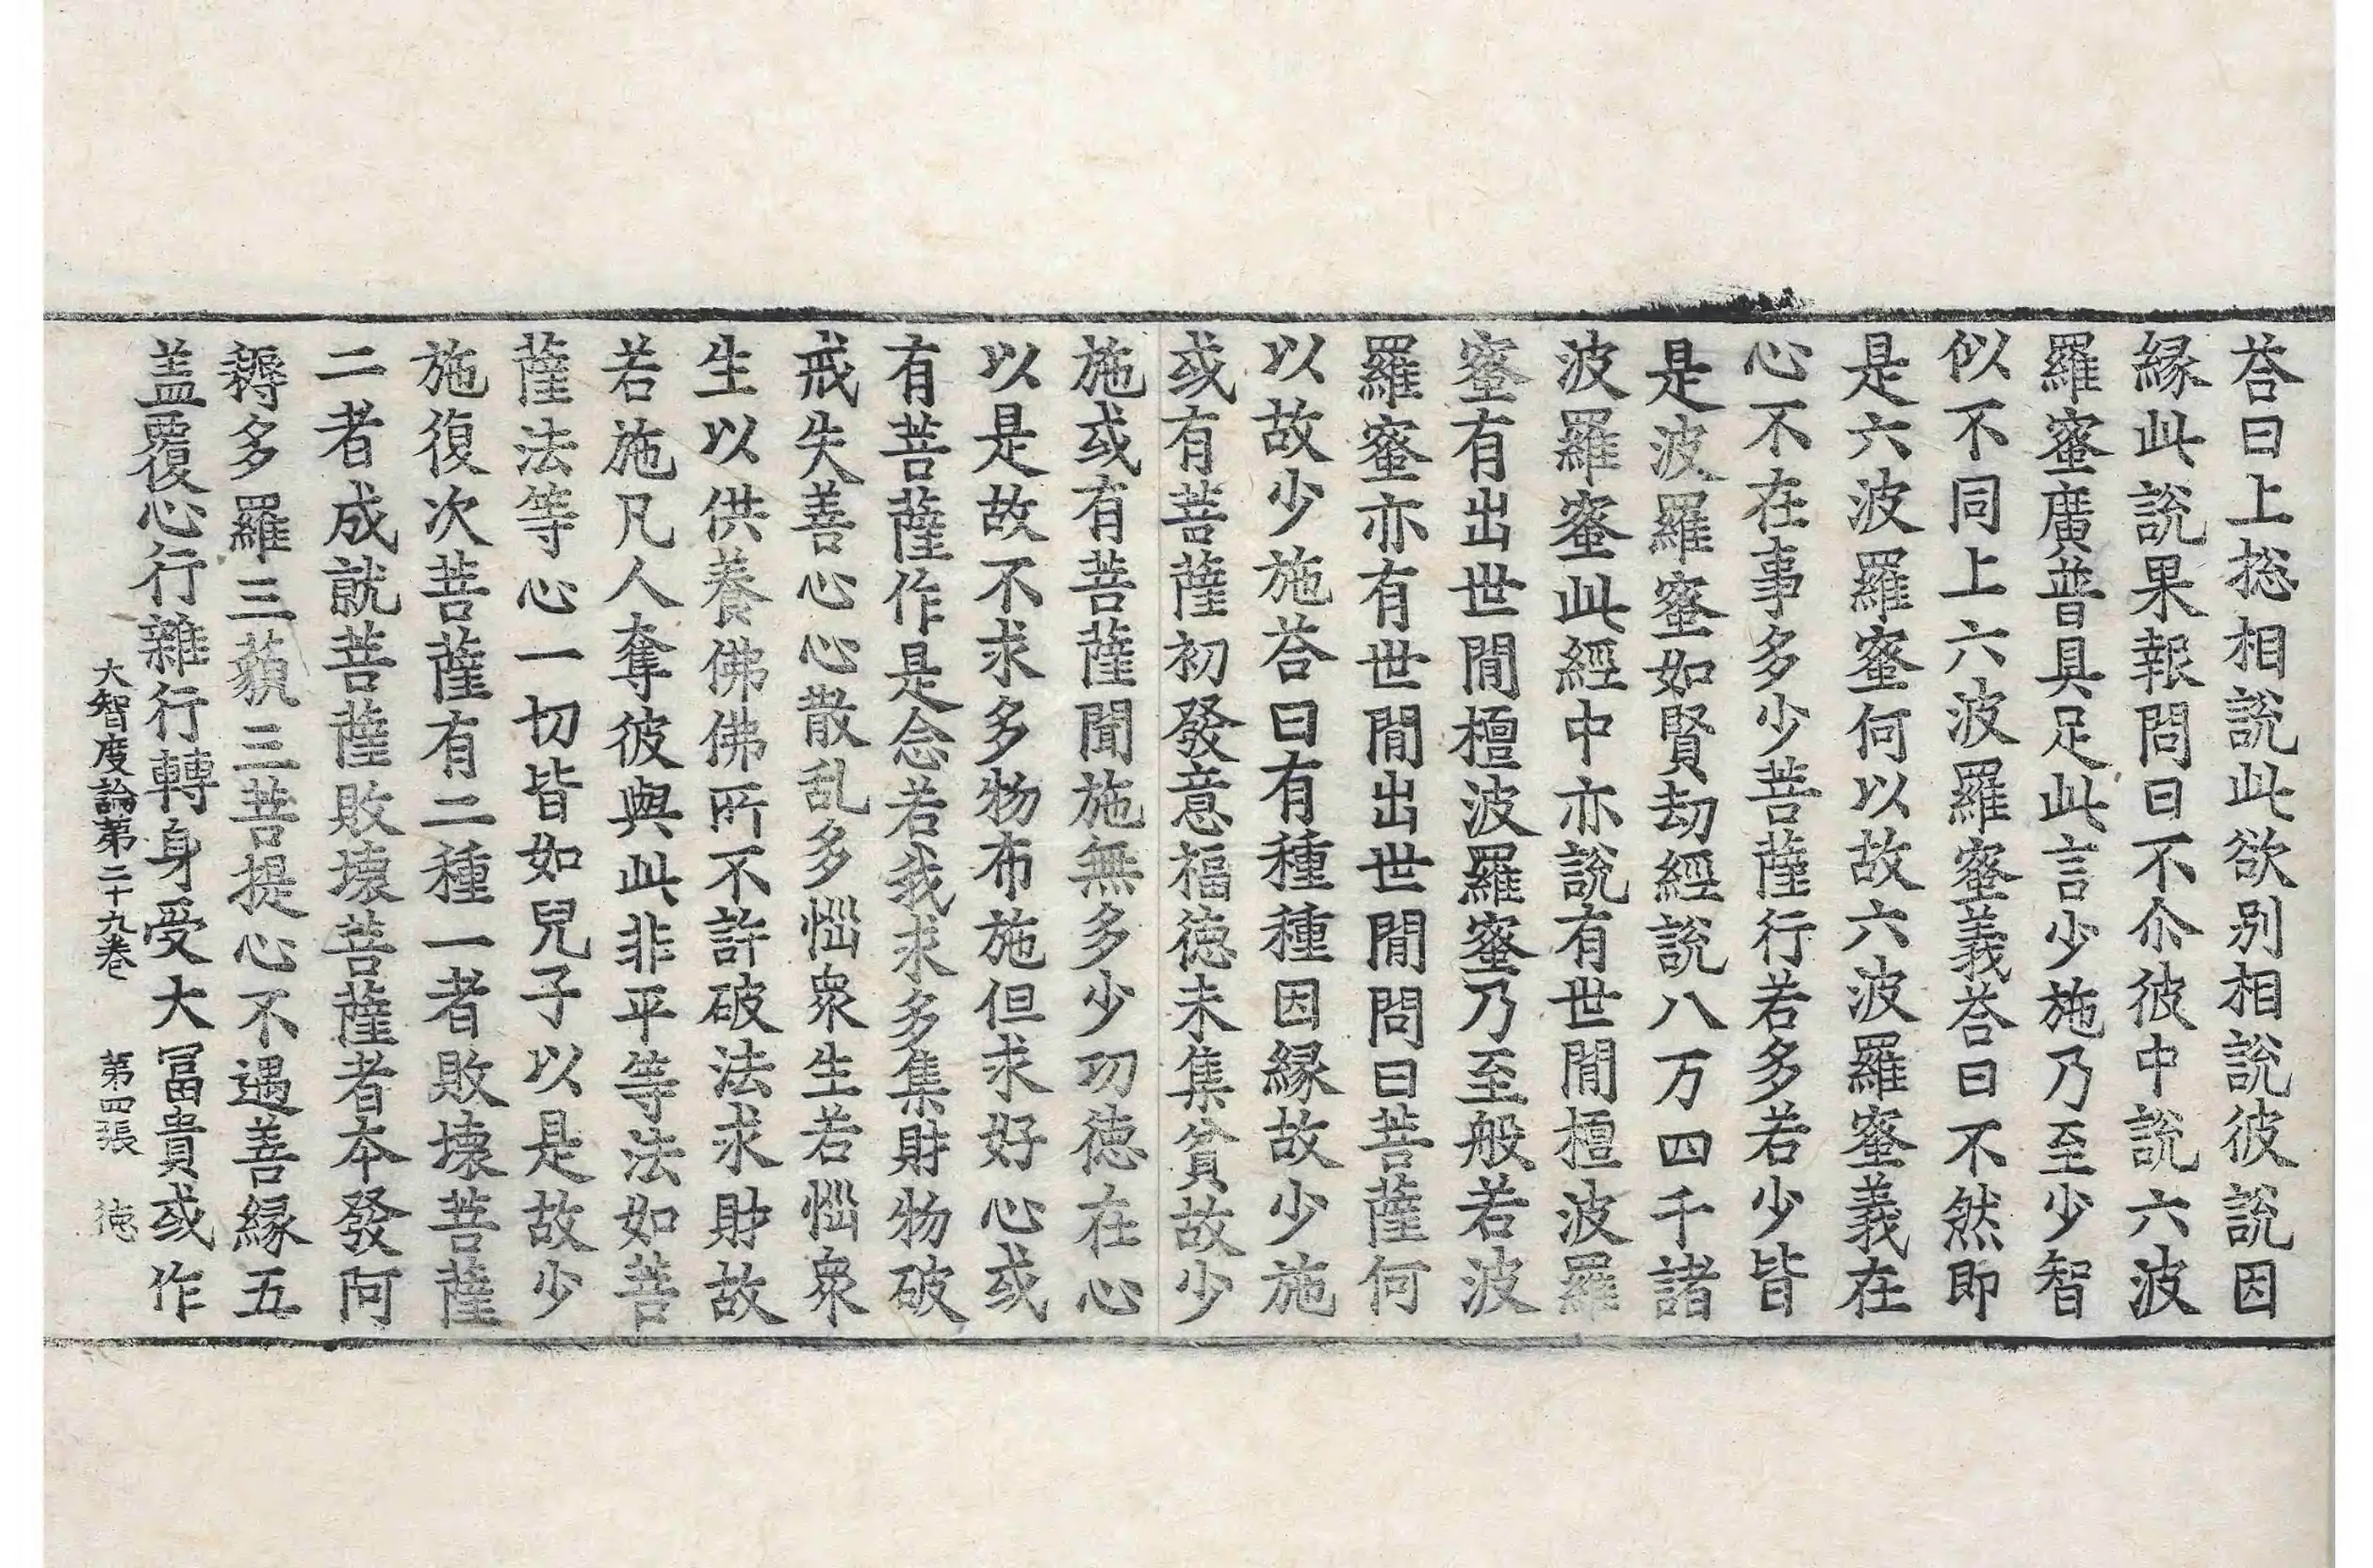 荅曰上捴相說此欲别相說彼說因
縁此說果報問曰不尒彼中說六波
羅蜜廣普具足此言少施乃至少智
似不同上六波羅蜜義荅曰不然即
是六波羅蜜何以故六波羅蜜義在
心不在事多少菩薩行若多若少皆
是波羅蜜如賢劫經說八万四千諸
波羅蜜此經中亦說有世閒檀波羅
蜜有出世閒檀波羅蜜乃至般若波
羅蜜亦有世閒出世閒問曰菩薩何
以故少施荅曰有種種因縁故少施
或有菩薩初發意福徳未集貧故少
施或有菩薩聞施無多少功徳在心
以是故不求多物布施但求好心或
有菩薩作是念若我求多集財物破
戒失善心心散乱多惱衆生若惱衆
生以供養佛佛所不許破法求財故
若施凡人奪彼與此非平等法如菩
薩法等心一切皆如兒子以是故少
施復次菩薩有二種一者敗壞菩薩
二者成就菩薩敗壞菩薩者本發阿
耨多羅三藐三菩提心不遇善縁五
盖覆心行雜行轉身受大冨貴或作
大智度論第二十九卷 第四張 徳